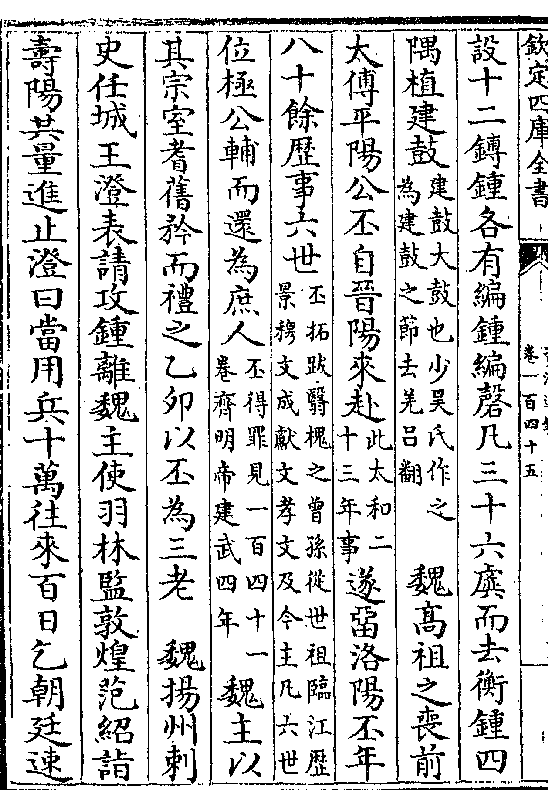 欽定四庫全書
卷一百四十五
設十二鎛鍾各有編鍾編磬凡三十六簴而去衡鍾四
隅植建鼓建鼓大鼓也少昊氏作之為建鼓之節去羌呂翻　魏髙祖之喪前
太傅平陽公丕自晉陽來赴此太和二十三年事遂畱洛陽丕年
八十餘歴事六世丕拓跋翳槐之曾孫從世祖臨江歴景穆文成獻文孝文及今主凡六世
位極公輔而還為庶人丕得罪見一百四十一卷齊明帝建武四年魏主以
其宗室耆舊矜而禮之乙卯以丕為三老　魏揚州刺
史任城王澄表請攻鍾離魏主使羽林監敦煌范紹詣
壽陽共量進止澄曰當用兵十萬往來百日乞朝廷速